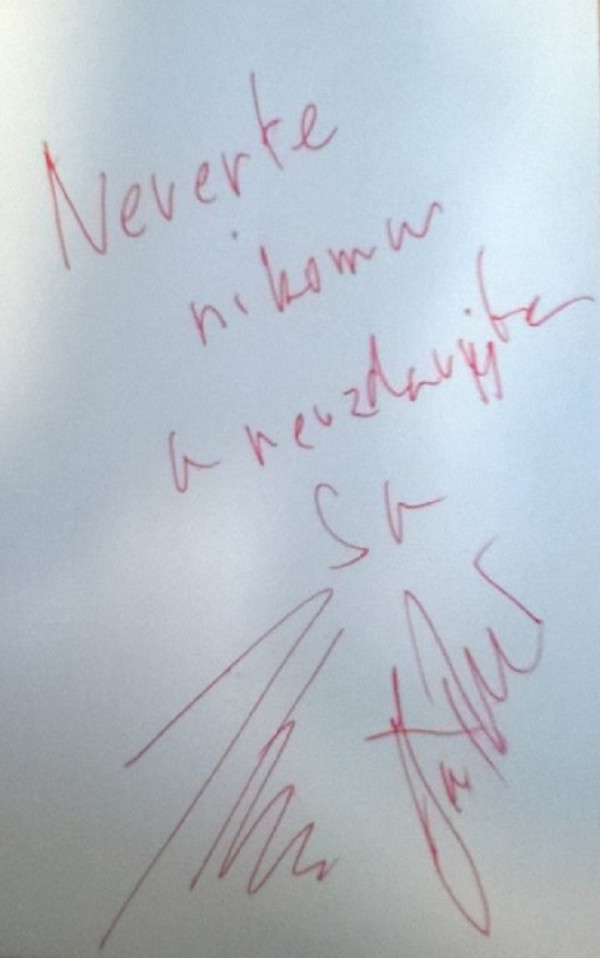 Neverte
nikomu
a nevzdavajte
sa